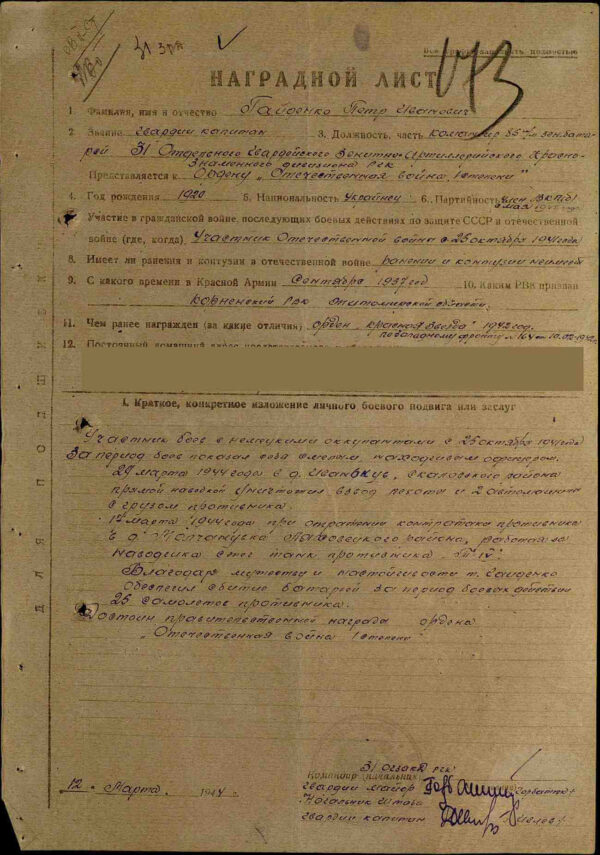 31 зра
НАГРАДНОЙ ЛИСТ
1. Фамилия, имя и отчество Гайденко Петр Иванович
2. Звание Гвардии капитан 3. Должность, часть командир 85 зен. бата-
рей 31 Отдельного Гвардейского Зенитно-Артиллерийского Красно-
Знаменного дивизиона РГК
Представляется к Ордену „Отечественная война I степени"
4. Год рождения 1920 5. Национальность Украинец 6. Партийность член ВКП(б)
Участие в гражданской войне, последующих боевых действиях по защите СССР и отечественной
войне (где, когда) Участник Отечественной войны с 25 октября 1941 года
8. Имеет ли ранения и контузии в отечественной войне ранений и контузий не имеет
9. С какого времени в Красной Армии Сентября 1937 год 10. Каким РВК призван
РВК Житомирской области.
11. Чем ранее награжден (за какие отличия) орден „Красная Звезда" 1942 год.
по Западному фронту № 164 от 10.02.1942
12. Постоянный домашний адрес
I. Краткое, конкретное изложение личного боевого подвига или заслуг
Участник боев с немецкими оккупантами с 25 октября 1941 года
За период боев показал себя смелым, находчивым офицером.
29 марта 1944 года в д. района
прямой наводкой уничтожил взвод пехоты и 2 автомашины
с грузом противника.
марта 1944 года при отражении контратаки противника
в д. района, работая за
наводчика сжег танк противника „Т IV"
Благодаря мужеству и настойчивости т. Гайденко
обеспечил сбитие батареей за период боевых действий
25 самолетов противника.
Достоин правительственной награды ордена
„Отечественная война I степени"
ДЛЯ ПОДШИВКИ
31 ОГЗАКД РГК
Командир (начальник)
гвардии майор
Начальник Штаба
12 „ Марта 1944 г.
гвардии капитан